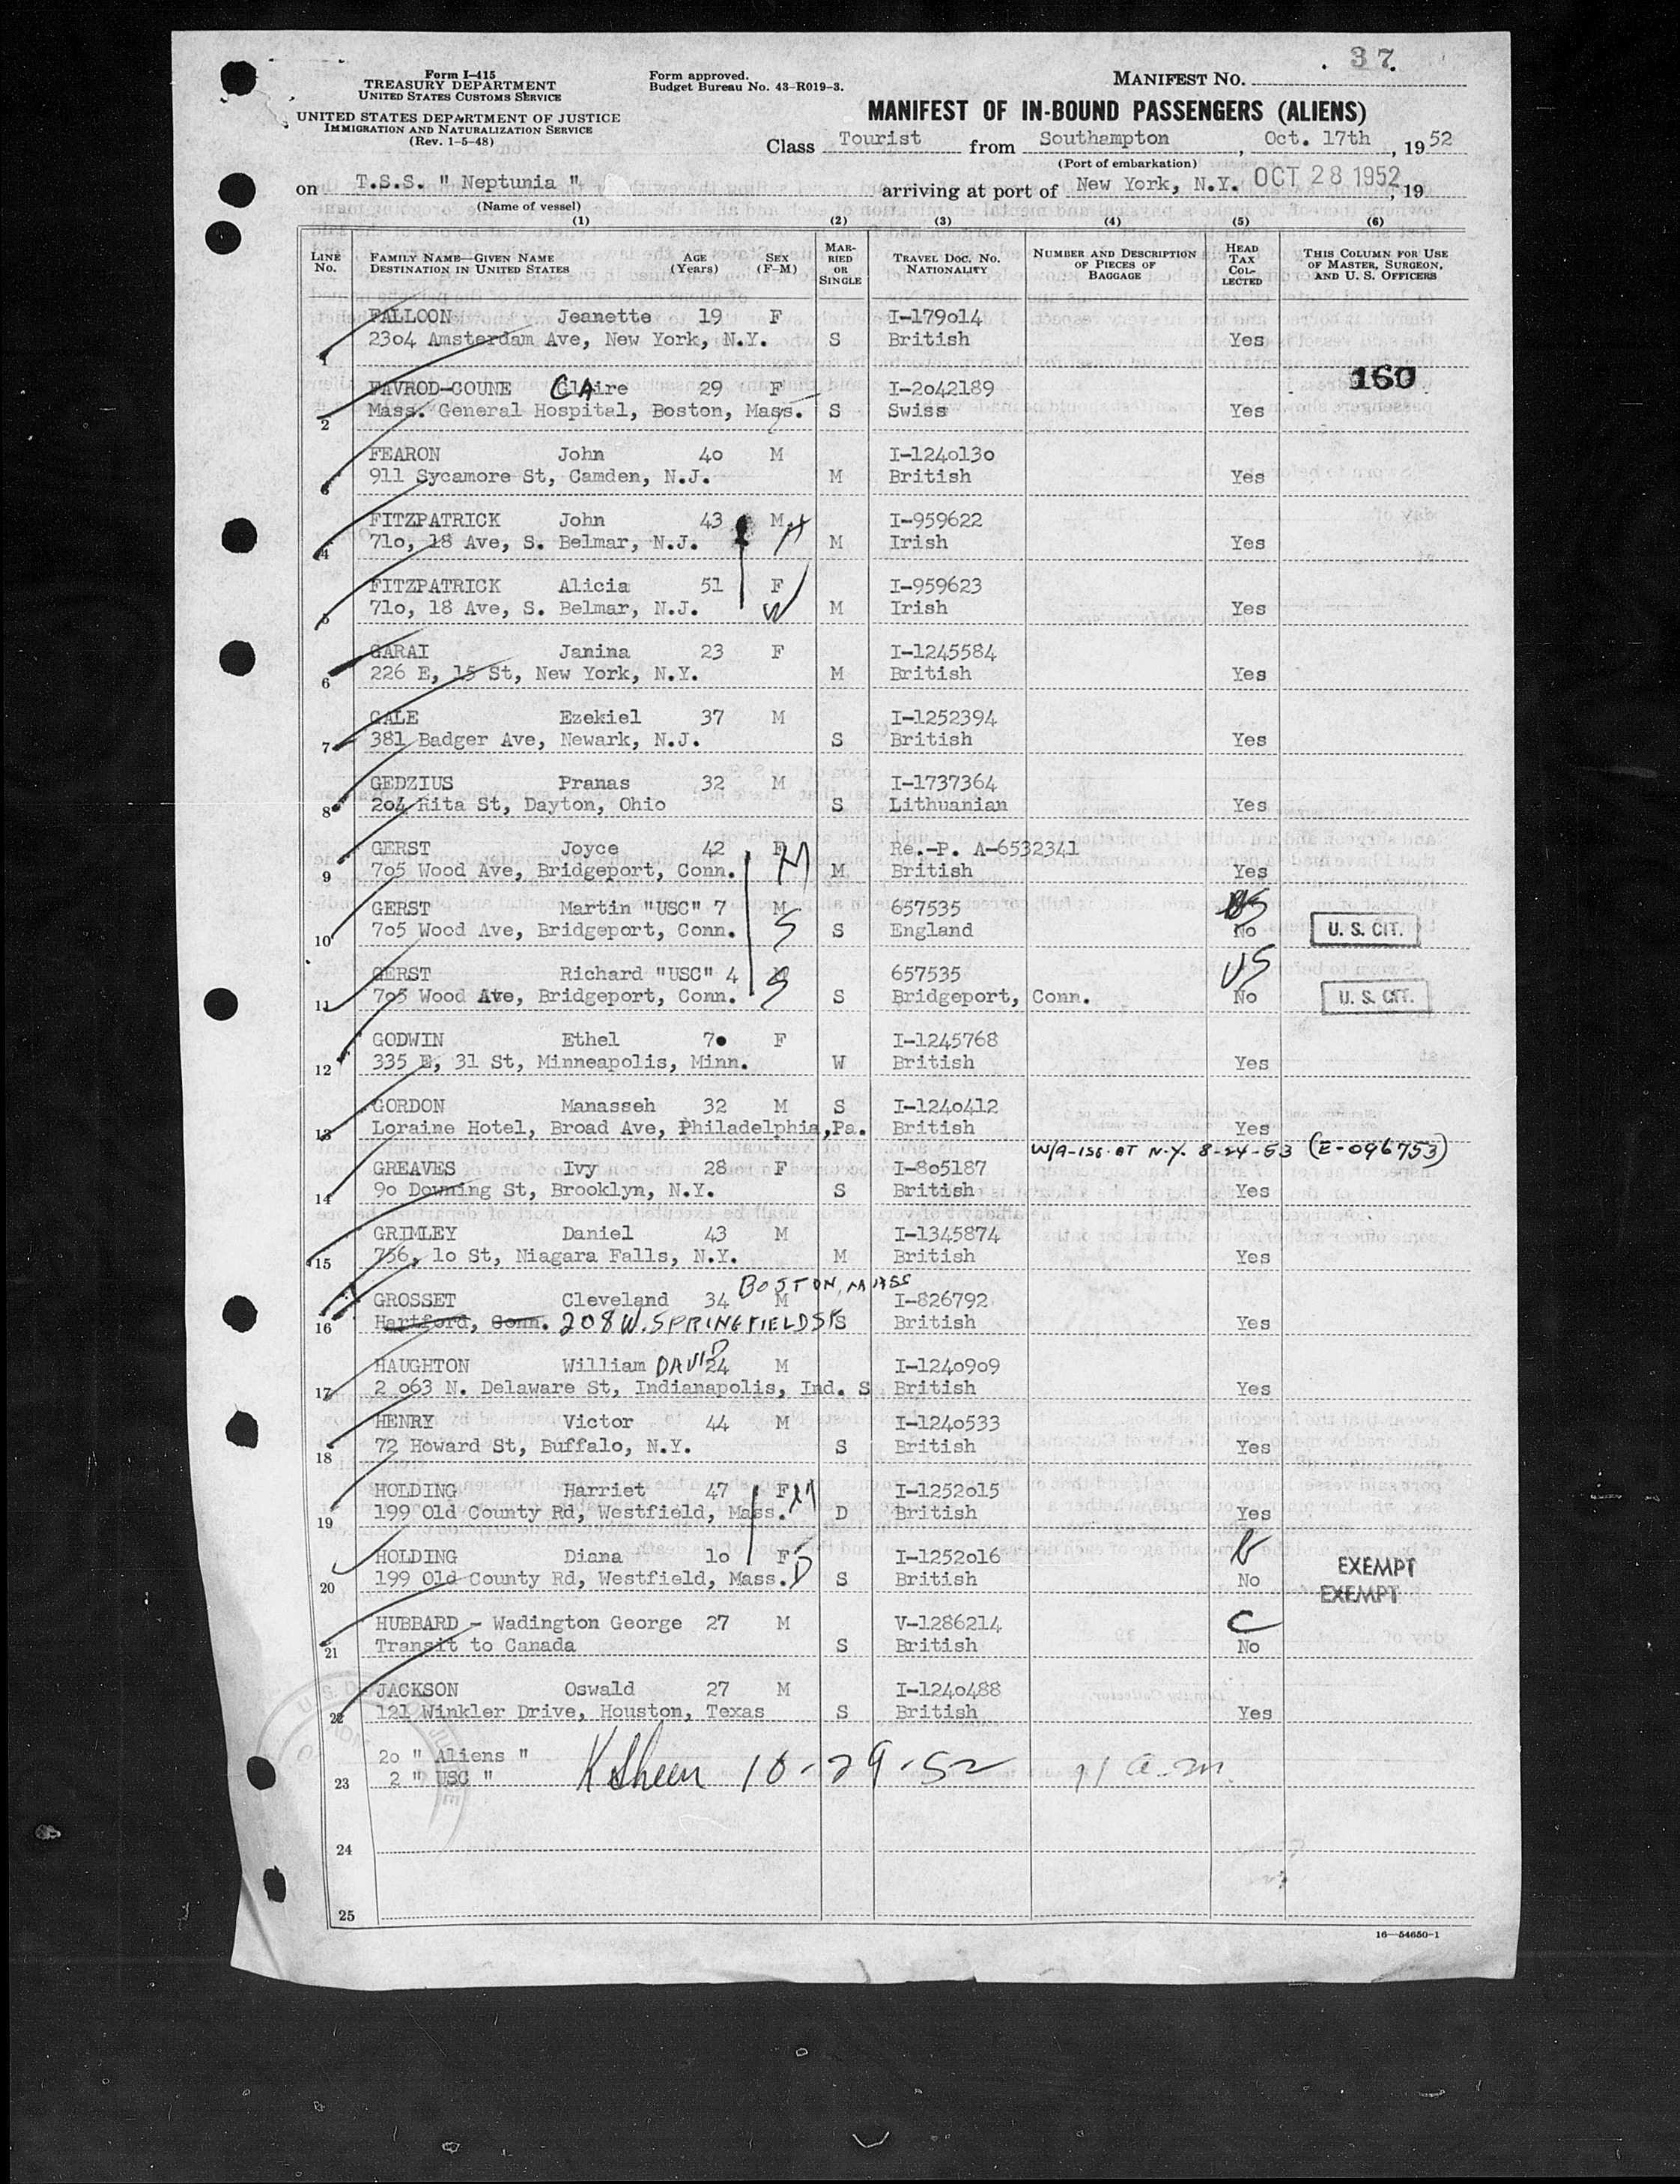 37.
Form I-415
TREASURY DEPARTMENT
UNITED STATES CUSTOMS SERVICE
UNITED STATES DEPARTMENT OF JUSTICE
IMMIGRATION AND NATURALIZATION SERVICE
(Rev. 1-5-48)
Form approved.
Budget Bureau No. 43-R019-3.
MANIFEST NO.
MANIFEST OF IN-BOUND PASSENGERS (ALIENS)
Class Tourist from Southampton, Oct. 17th, 1952
(Port of embarkation)
on T.S.S. " Neptunia " arriving at port of New York, N.Y. OCT 28 1952, 19
(Name of vessel)
(1) (2) (3) (4) (5) (6)
LINE No. FAMILY NAME—GIVEN NAME DESTINATION IN UNITED STATES AGE (Years) SEX (F-M) MARRIED OR SINGLE TRAVEL DOC. NO. NATIONALITY NUMBER AND DESCRIPTION OF PIECES OF BAGGAGE HEAD TAX COLLECTED THIS COLUMN FOR USE OF MASTER, SURGEON, AND U. S. OFFICERS
FALLOON Jeanette 19 F I-179014
1 2304 Amsterdam Ave, New York, N.Y. S British Yes
160
FAVROD-COUNE CA Claire 29 F I-2042189
2 Mass. General Hospital, Boston, Mass. S Swiss Yes
FEARON John 40 M I-1240130
3 911 Sycamore St, Camden, N.J. M British Yes
FITZPATRICK John 43 M H I-959622
4 710, 18 Ave, S. Belmar, N.J. M Irish Yes
FITZPATRICK Alicia 51 F I-959623
5 710, 18 Ave, S. Belmar, N.J. W M Irish Yes
GARAI Janina 23 F I-1245584
6 226 E, 15 St, New York, N.Y. M British Yes
GALE Ezekiel 37 M I-1252394
7 381 Badger Ave, Newark, N.J. S British Yes
GEDZIUS Pranas 32 M I-1737364
8 204 Rita St, Dayton, Ohio S Lithuanian Yes
GERST Joyce 42 F M Re.-P. A-6532341
9 705 Wood Ave, Bridgeport, Conn. M British Yes
GERST Martin "USC" 7 M 657535 US
10 705 Wood Ave, Bridgeport, Conn. S S England No U. S. CIT.
GERST Richard "USC" 4 M 657535 US
11 705 Wood Ave, Bridgeport, Conn. S S Bridgeport, Conn. No U. S. CIT.
GODWIN Ethel 70 F I-1245768
12 335 E, 31 St, Minneapolis, Minn. W British Yes
GORDON Manasseh 32 M S I-1240412
13 Loraine Hotel, Broad Ave, Philadelphia, Pa. British Yes
W/A-156 AT N.Y. 8-24-53 (E-096753)
GREAVES Ivy 28 F I-805187
14 90 Downing St, Brooklyn, N.Y. S British Yes
GRIMLEY Daniel 43 M I-1345874
15 756, 10 St, Niagara Falls, N.Y. M British Yes
BOSTON, MASS
GROSSET Cleveland 34 M I-826792
16 Hartford, Conn. 208 W. SPRINGFIELD ST S British Yes
HAUGHTON William DAVID 24 M I-1240909
17 2 063 N. Delaware St, Indianapolis, Ind. S British Yes
HENRY Victor 44 M I-1240533
18 72 Howard St, Buffalo, N.Y. S British Yes
HOLDING Harriet 47 F M I-1252015
19 199 Old County Rd, Westfield, Mass. D British Yes
HOLDING Diana 10 F I-1252016 EXEMPT
20 199 Old County Rd, Westfield, Mass. D S British No EXEMPT
HUBBARD - Wadington George 27 M V-1286214 C
21 Transit to Canada S British No
JACKSON Oswald 27 M I-1240488
22 121 Winkler Drive, Houston, Texas S British Yes
20 " Aliens "
23 2 " USC " K Sheen 10-29-52 11 a.m.
24
25
16—54650-1